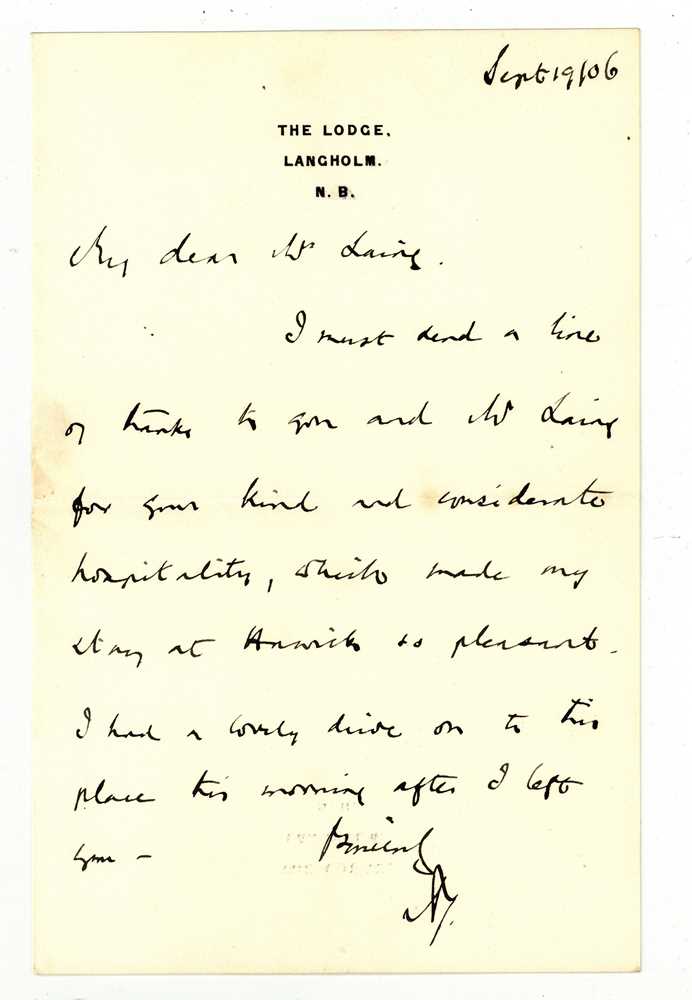 Sept 19/06
THE LODGE,
LANGHOLM.
N. B.
My dear Mrs Laing.
I must send a line
of thanks to you and Mr Laing
for your kind and considerate
hospitality, which made my
stay at Hawick so pleasant.
I had a lovely drive on to this
place this morning after I left
you –